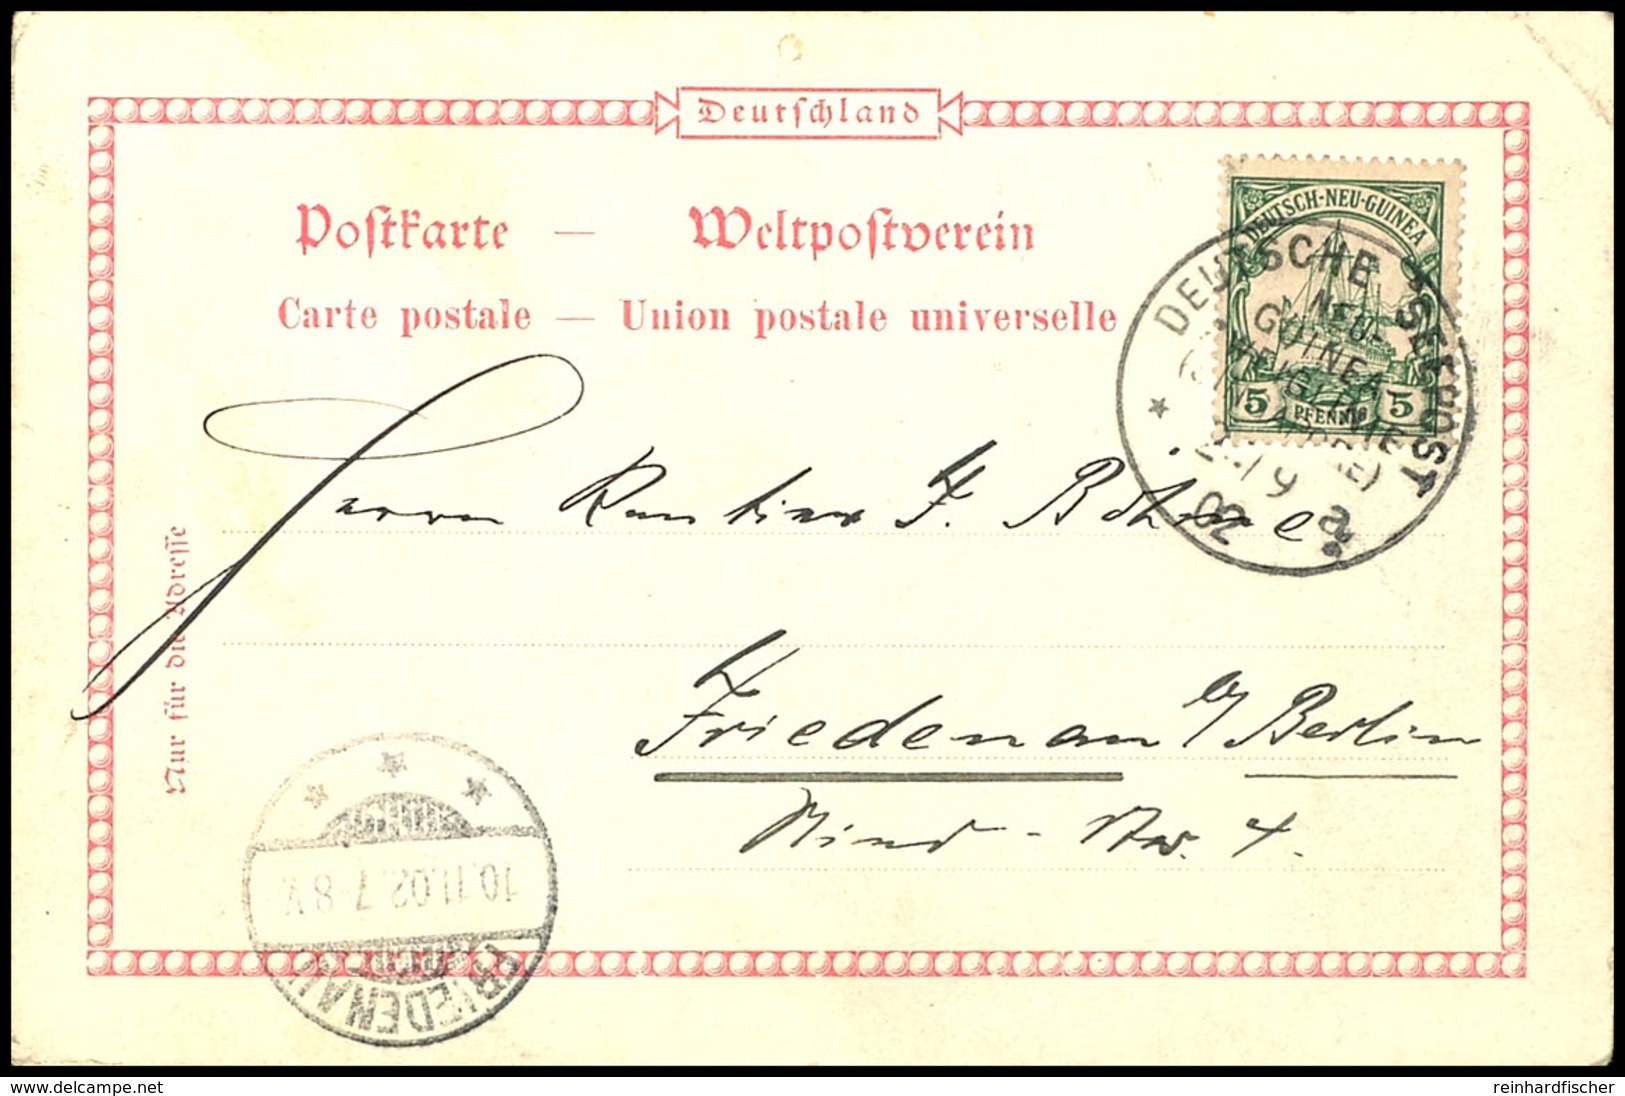 Deutschland
Postkarte — Weltpostverein
Carte postale — Union postale universelle
DEUTSCH-NEU-GUINEA
5 PFENNIG 5
DEUTSCHE SEEPOST
NEU-
GUINEA
ZWEIGLINIE
/9
02
a
Herrn F. Böhme
Friedenau b/ Berlin
4.
Nur für die Adresse
10.11.02.7-8V.
FRIEDENAU
www.delcampe.net
reinhardfischer